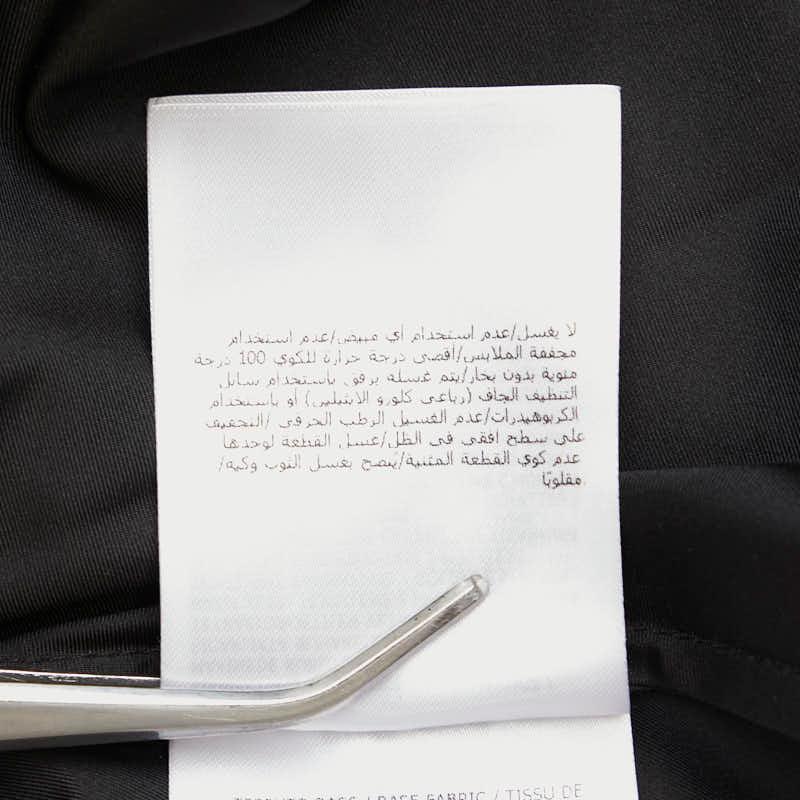 لا يغسل/عدم استخدام أي مبيض/عدم استخدام
مجففة الملابس/أقصى درجة حرارة للكوي 100 درجة
مئوية بدون بخار/يتم غسله برفق باستخدام سائل
التنظيف الجاف (رباعي كلورو الاثيلين) أو باستخدام
الكربوهيدرات/عدم الغسيل الرطب الحرفي /التجفيف
على سطح افقي في الظل/غسل القطعة لوحدها
عدم كوي القطعة المثنية/يُنصح بغسل الثوب وكيه/
مقلوبًا.
BASE FABRIC / TISSU DE